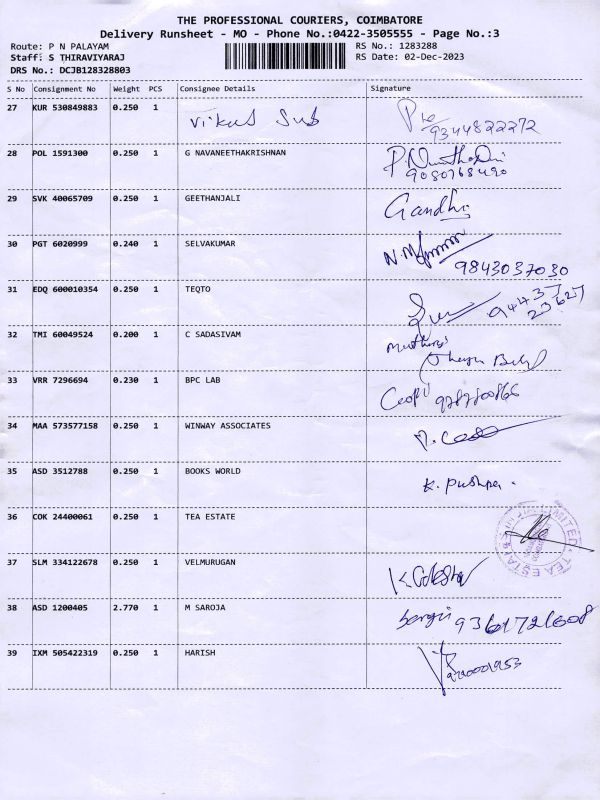 THE PROFESSIONAL COURIERS, COIMBATORE
Delivery Runsheet - MO - Phone No.:0422-3505555 - Page No.:3
Route: P N PALAYAM
Staff: S THIRAVIYARAJ
DRS No.: DCJB128328803
RS No.: 1283288
RS Date: 02-Dec-2023
S No Consignment No Weight PCS Consignee Details Signature
27 KUR 530849883 0.250 1 Vikas Sub
9344822272
28 POL 1591300 0.250 1 G NAVANEETHAKRISHNAN
9080768490
29 SVK 40065709 0.250 1 GEETHANJALI Gandhi
30 PGT 6020999 0.240 1 SELVAKUMAR
9843037030
31 EDQ 600010354 0.250 1 TEQTO
94437
23627
32 TMI 60049524 0.200 1 C SADASIVAM
33 VRR 7296694 0.230 1 BPC LAB
34 MAA 573577158 0.250 1 WINWAY ASSOCIATES
35 ASD 3512788 0.250 1 BOOKS WORLD K. Pushpa.
36 COK 24400061 0.250 1 TEA ESTATE
TEA ESTATES INDIA LIMITED
37 SLM 334122678 0.250 1 VELMURUGAN
38 ASD 1200405 2.770 1 M SAROJA 9361721608
39 IXM 505422319 0.250 1 HARISH